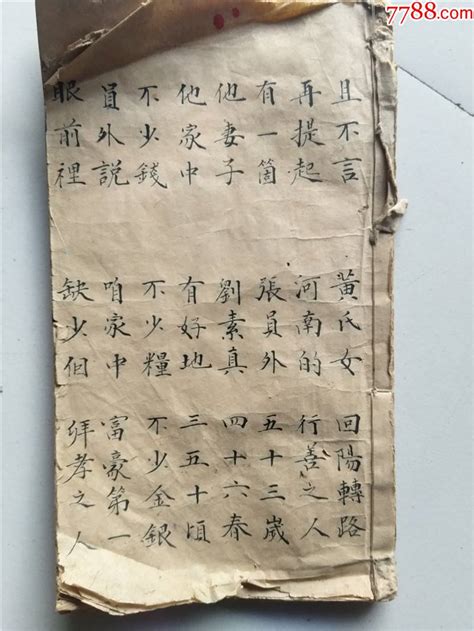 7788.com
且不言 黃氏女 回陽轉路
再提起 河南的 行善之人
有一箇 張員外 五十三歲
他妻子 劉素真 四十六春
他家中 有好地 三五十頃
不少錢 不少糧 不少金銀
員外說 咱家中 富豪第一
眼前裡 缺少 孝之人